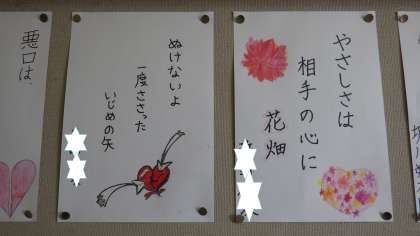 やさしさは
相手の心に
花畑
ぬけないよ
一度ささった
いじめの矢
悪口は、